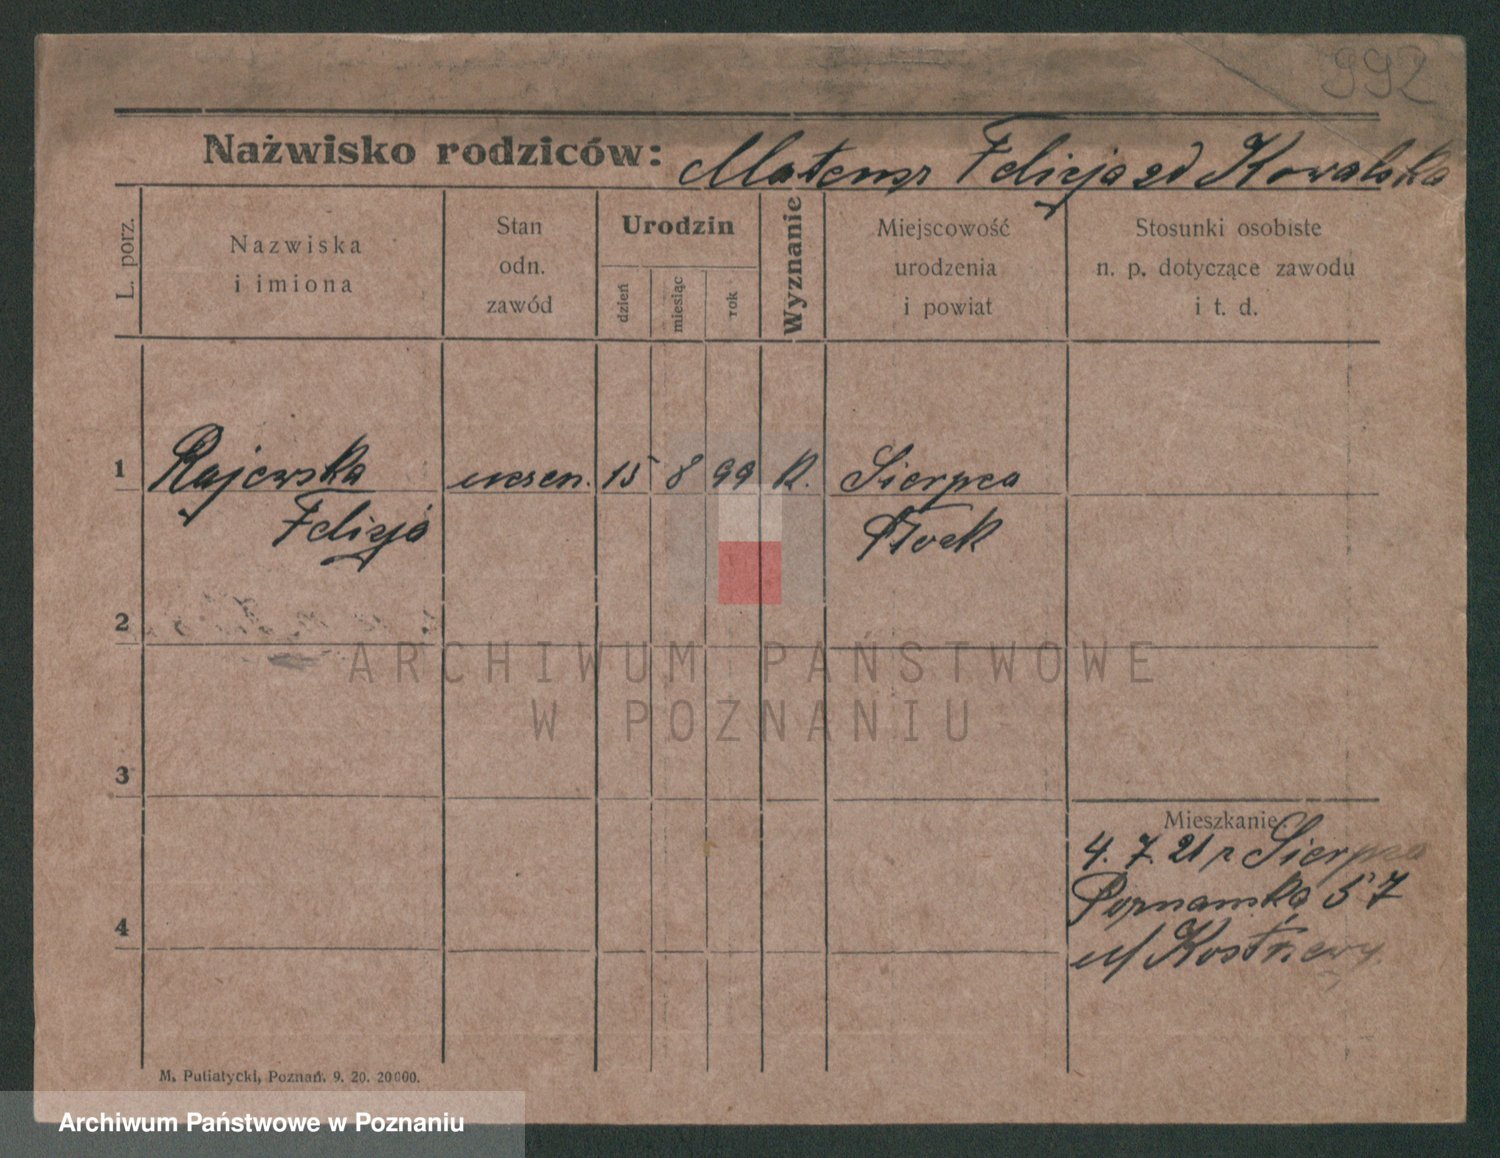 992
Nażwisko rodziców: Mateusz Felicja zd Kowalska
L. porz.
Nazwiska
i imiona
Stan
odn.
zawód
Urodzin
dzień
miesiąc
rok
Wyznanie
Miejscowość
urodzenia
i powiat
Stosunki osobiste
n. p. dotyczące zawodu
i t. d.
1 Rajewska uczen. 15 8 99 k. Sierpca
Felicja Płock
2
ARCHIWUM PAŃSTWOWE
W POZNANIU
3
Mieszkanie:
4. 7. 21 r Sierpca
Poznańska 57
4
u/
M. Putiatycki, Poznań. 9. 20. 20000.
Archiwum Państwowe w Poznaniu